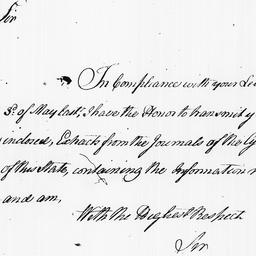 Sir
In Compliance with your Le
3d. of May last, I have the Honor to transmit y
inclosed, Extracts from the Journals of the
of this State, containing the Information
and am,
With the Highest Respect
Sir